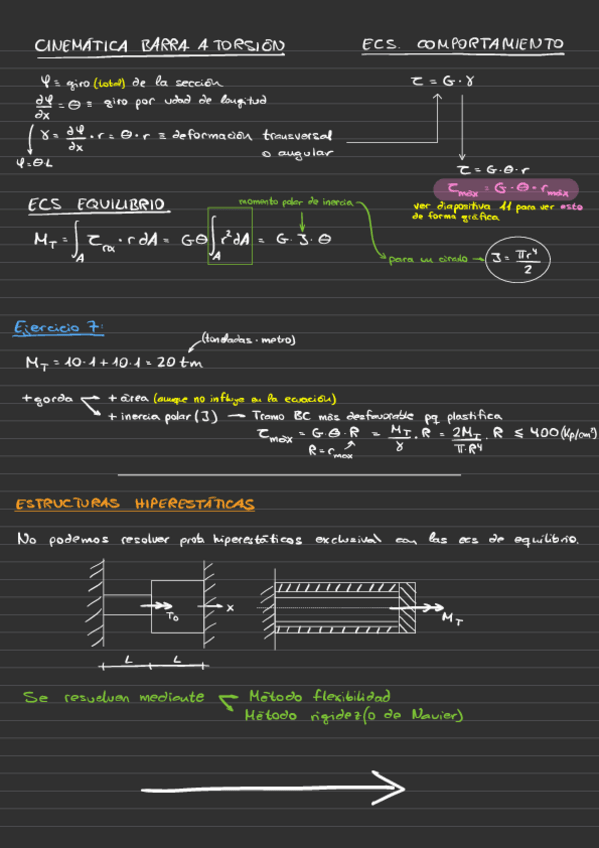 CINEMÁTICA BARRA A TORSIÓN
ECS. COMPORTAMIENTO
φ ≡ giro (total) de la sección
∂φ/∂x = θ ≡ giro por udad de longitud
γ = ∂φ/∂x · r = θ · r ≡ deformación transversal
o angular
φ = θ·L
τ = G · γ
τ = G · θ · r
τmáx = G · θ · rmáx
ver diapositiva 11 para ver esto
de forma gráfica
ECS EQUILIBRIO
momento polar de inercia
M_T = ∫_A τ_rα · r dA = Gθ ∫_A r² dA = G · J · θ
para un círculo → J = πr⁴/2
Ejercicio 7:
(toneladas · metro)
M_T = 10·1 + 10·1 = 20 tm
+ gorda
+ área (aunque no influye en la ecuación)
+ inercia polar (J) → Tramo BC más desfavorable pq plastifica
τmáx = G · θ · R = M_T/γ · R = 2M_T/π·R⁴ · R ≤ 400 (Kp/cm²)
R = rmax
ESTRUCTURAS HIPERESTÁTICAS
No podemos resolver prob. hiperestáticos exclusival con las ecs de equilibrio.
T₀
x
M_T
L
L
Se resuelven mediente
Método flexibilidad
Método rigidez (o de Navier)